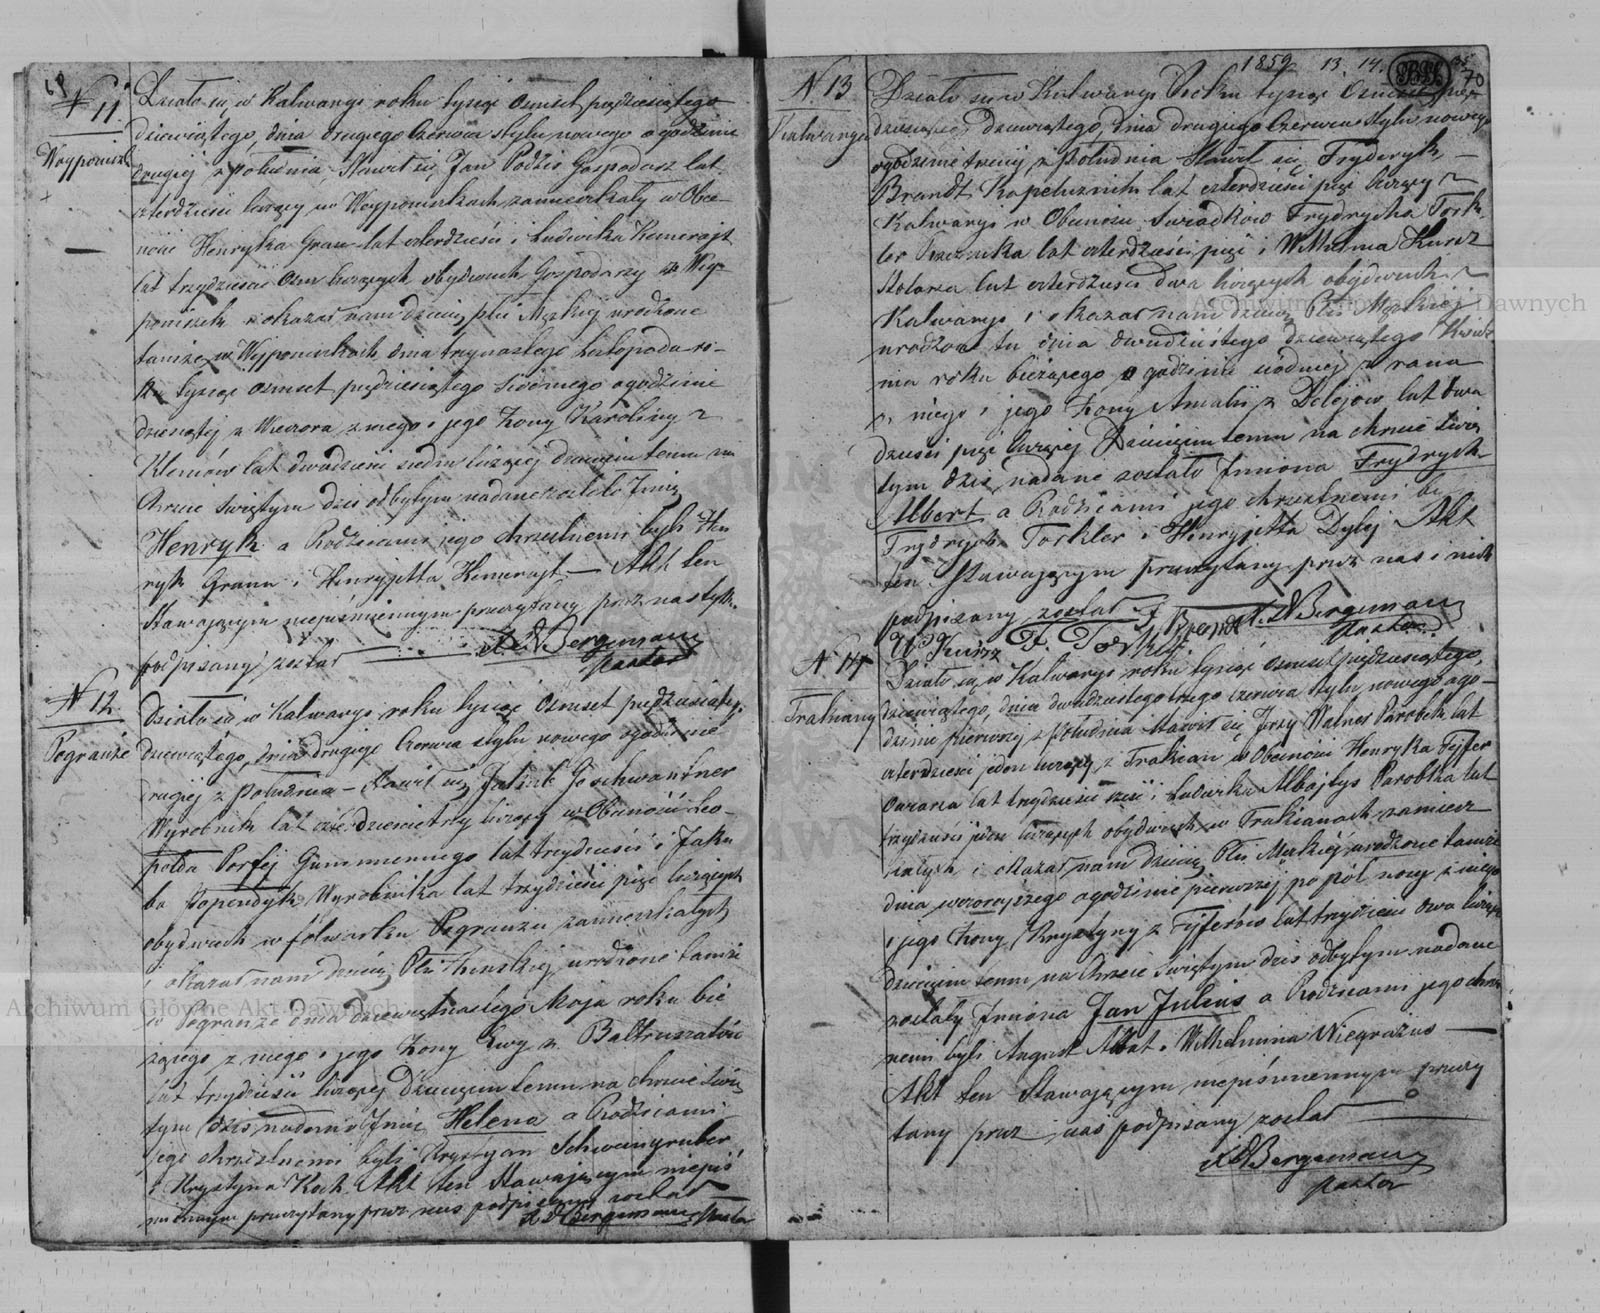 69
N 11.
Wayponiszki
Działo się w Kalwaryi roku tysiąc Osmset pięćdziesiątego
dziewiątego, dnia drugiego Czerwca stylu nowego o godzinie
drugiej z południa, Stawił się Jan Podżis Gospodarz lat
czterdzieści liczący w Wayponiszkach zamieszkały w Obec-
ności Henryka Graw lat czterdzieści i Ludwika Kimerajt
lat trzydzieści Osm liczących obydwóch Gospodarzy w Way-
poniszk i okazał nam dziecię płci Męzkiej urodzone
tamże w Wayponiszkach dnia trzynastego Listopada ro-
ku tysiąc osmset pięćdziesiątego siódmego o godzinie
dziesiątej z Wieczora z niego i jego Żony Karoliny z
Klemów lat dwadzieścia siedm liczącej dziecięciu temu na
Chrzcie świętym dziś odbytym nadane zostało Imię
Henryk a Rodzicami jego chrzestnemi byli Hen
ryk Grann i Henryjetta Kimerajt — Akt ten
Stawającym niepiśmiennym przeczytany przez nas tylko
podpisany został
Bergemann
pastor
N 12
Pogranże
Działo się w Kalwaryi roku tysiąc Osmset pięćdziesiątego
dziewiątego, dnia drugiego Czerwca stylu nowego o godzinie
drugiej z południa — Stawił się Goschwantner
Wyrobnik lat trzy liczący w Obecności Leo-
polda Porfej Gumiennego lat trzydzieści i Jaku
ba Papendyk Wyrobnika lat trzydzieści pięć liczących
obydwóch w folwarku Pogranżu zamieszkałych
i okazał nam dziecię Płci Żeńskiej urodzone tamże
w Pogranże dnia dziewiętnastego Maja roku bie
żącego z niego i jego Żony Ewy z Baltruszatów
lat trzydzieści liczącej Dziecięciu temu na chrzcie świę
tym dziś nadano Imię Helena a Rodzicami
jego chrzestnemi byli Krystyan Schwangruber
i Krystyna Koch. Akt ten Stawającym niepiś
miennym przeczytany przez nas podpisany został
Bergemann Pastor
1859 13. 14. 70
N. 13
Kalwarya
Działo się w Kalwaryi Roku tysiąc Osmset pięć
dziesiątego dziewiątego, dnia drugiego Czerwca stylu nowego
o godzinie trzeciej z Południa Stawił się Fryderyk —
Brandt Kapelusznik lat czterdzieści pięć liczący z
Kalwaryi w Obecności Świadków Frydrycha Tork
ler lat czterdzieści pięć i Wilhelma Kurcz
Stolarza lat czterdzieści dwa liczących obydwóch z
Kalwaryi i okazał nam dziecię Płci Męzkiej
urodzone tu dnia dwudziestego dziewiątego Kwiet
nia roku bieżącego o godzinie siódmej z rana
z niego i jego Żony Amalii z Dylejów lat dwa
dzieścia pięć liczącej Dziecięciu temu na chrzcie świę
tym dziś nadane zostało Imiona Frydrych
Albert a Rodzicami jego chrzestnemi by
Frydrych Torkler i Henryjetta Dylej Akt
ten Stawającym przeczytany przez nas i nich
podpisany został F. Brandt Bergemann
Kurz F. Torkler pastor
N 14
Trakiany
Działo się w Kalwaryi roku tysiąc osmset pięćdziesiątego,
dziewiątego, dnia dwudziestego trzego czerwca stylu nowego o go-
dzinie pierwszej z południa Stawił się Jerzy Walnes Parobek lat
czterdzieści jeden liczący z Trakian w Obecności Henryka Fyfer
Owczarza lat trzydzieści sześć i Ludwika Albajtys Parobka lat
trzydzieści jeden liczących obydwóch w Trakianach zamiesz
kałych i okazał nam dziecię Płci Męzkiej urodzone tamże
dnia wczorajszego o godzinie pierwszej po pół nocy z niego
i jego Żony Krystyny z Fyferów lat trzydzieści dwa liczącej
dziecięciu temu na Chrzcie świętym dziś odbytym nadane
zostały Imiona Jan Julius a Rodzicami jego chrzest
nemi byli August Albat i Wilhelmina Niegrażus —
Akt ten Stawającym niepiśmiennym przeczy
tany przez nas podpisany został
Bergemann
pastor
Archiwum Główne Akt Dawnych
Archiwum Główne Akt Dawnych